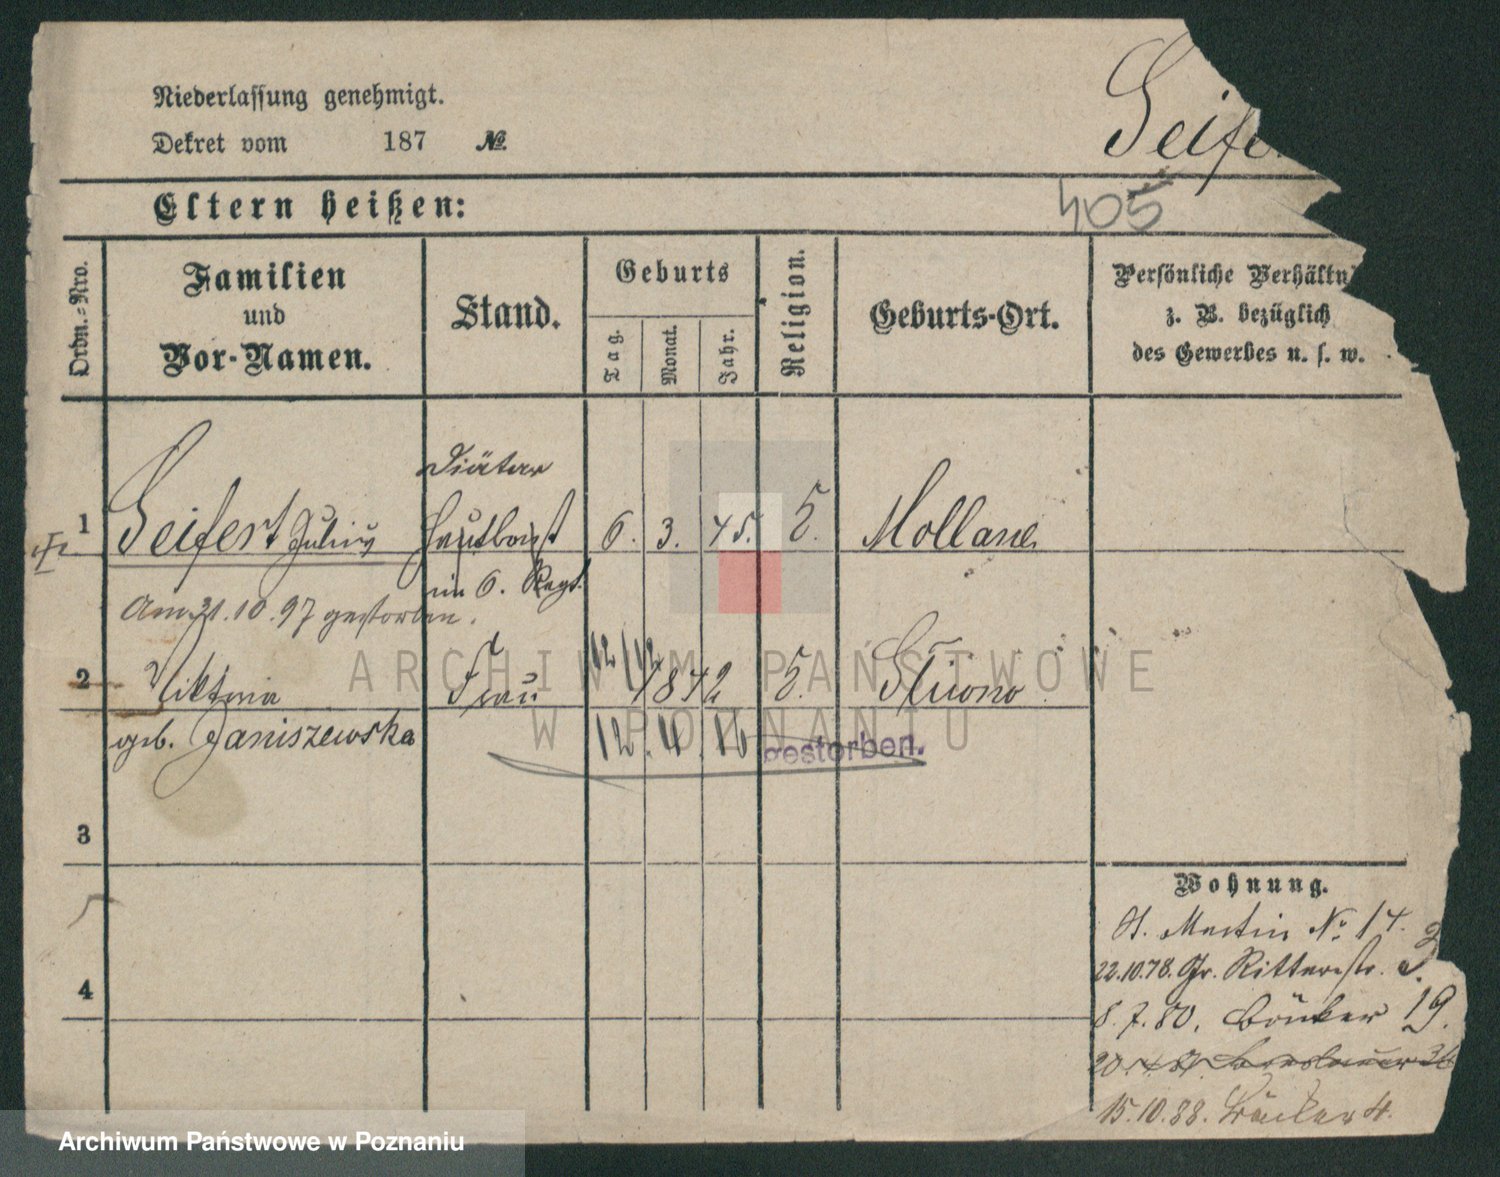 Niederlassung genehmigt.
Seife
Dekret vom 187 №
405
Eltern heißen:
Ordn.-Nro.
Familien und Vor-Namen.
Stand.
Geburts
Tag.
Monat.
Jahr.
Religion.
Geburts-Ort.
Persönliche Verhältn
z. B. bezüglich
des Gewerbes u. s. w.
Diätar
1 Seifert Julius Hautboist 6. 3. 45. Mollane
im 6. Regt.
Am 31.10.97 gestorben.
12/12
2 Viktoria Frau 1842
geb. Janiszewska 12. 4. 16 gestorben.
3
4
Wohnung.
St. Martin № 14.
22.10.78. Gr. Ritterstr. 2.
8.7.80. Bäcker 19.
15.10.88. Bäcker 4.
ARCHIWUM PAŃSTWOWE
W POZNANIU
Archiwum Państwowe w Poznaniu